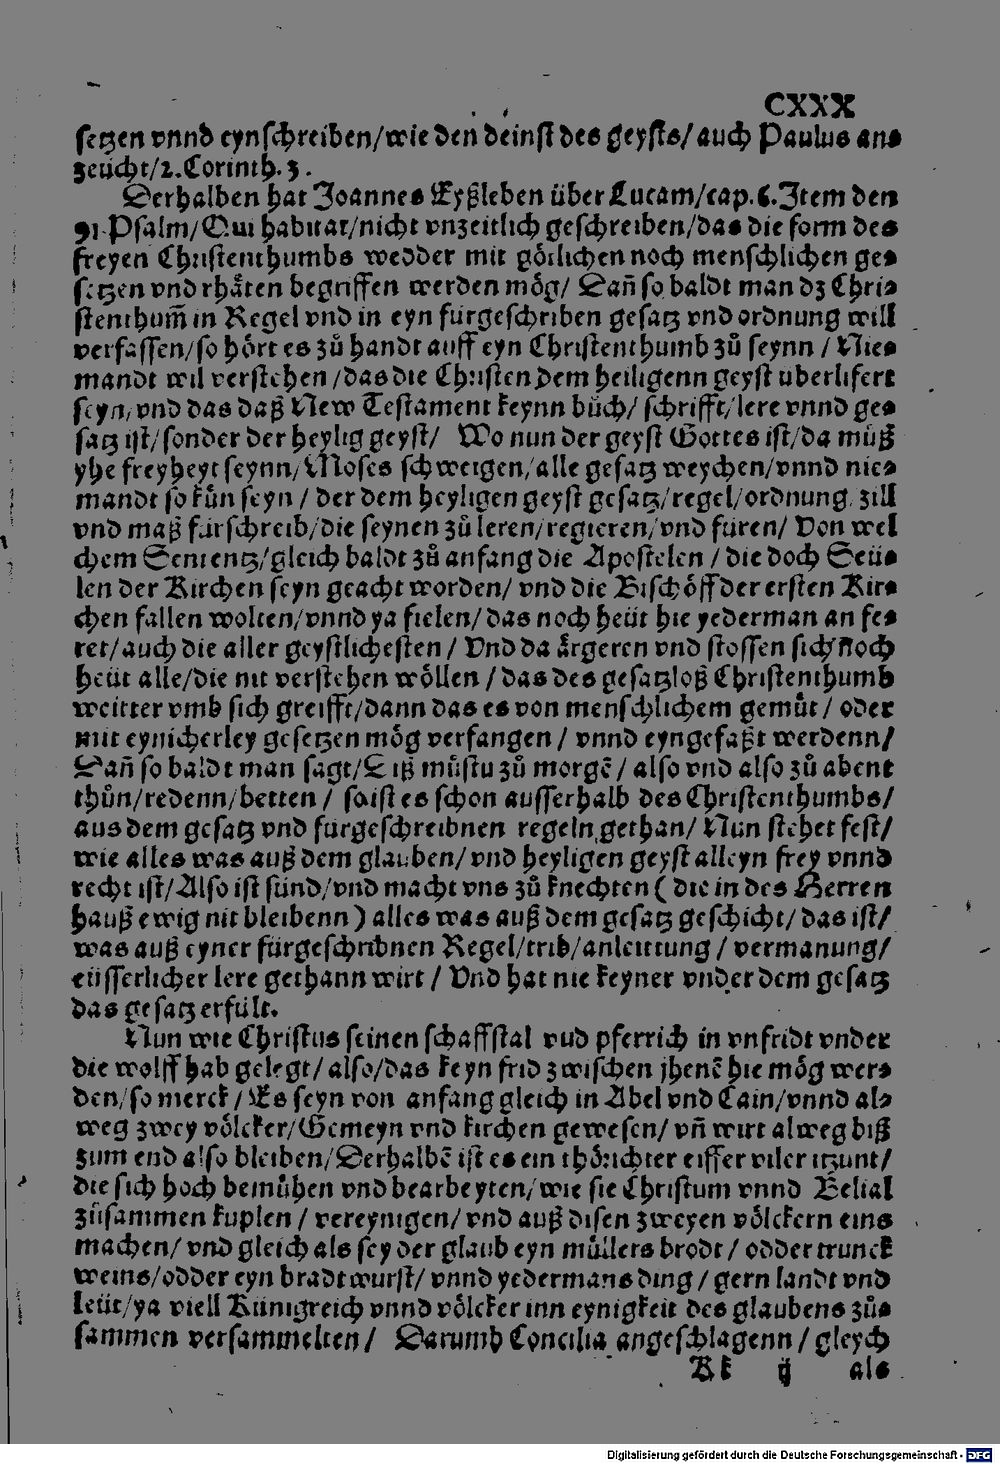 CXXX
setzen vnnd eynschreiben/wie den deinst des geysts/auch Paulus an⸗
zeücht/2.Corinth.3.
Derhalben hat Joannes Eyßleben über Lucam/cap.6.Item den
91 Psalm/Qui habitat/nicht vnzeitlich geschreiben/das die form des
freyen Christenthumbs wedder mit götlichen noch menschlichen ge⸗
setzen vnd rhäten begriffen werden mög/ Dañ so baldt man dz Chri⸗
stenthum̃ in Regel vnd in eyn fürgeschriben gesatz vnd ordnung will
verfassen/so hört es zů handt auff eyn Christenthumb zů seynn / Nie⸗
mandt wil verstehen /das die Christen dem heiligenn geyst uberlifert
seyn/vnd das daß New Testament keynn bůch/ schrifft/lere vnnd ge⸗
satz ist/sonder der heylig geyst/ Wo nun der geyst Gottes ist/da můß
yhe freyheyt seynn/Moses schweigen/alle gesatz weychen/vnnd nie⸗
mandt so kůn seyn / der dem heyligen geyst gesatz/regel/ordnung/zill
vnd maß fürschreib/die seynen zů leren/regieren/vnd füren/ Von wel
chem Sentenz/gleich baldt zů anfang die Apostelen / die doch Seü⸗
len der Kirchen seyn geacht worden/ vnd die Bischöff der ersten Kir⸗
chen fallen wolten/vnnd ya fielen/das noch heüt hie yederman an fe⸗
ret/auch die aller geystlichesten / Vnd da ärgeren vnd stossen sich noch
heüt alle/die nit verstehen wöllen / das des gesatzloß Christenthumb
weitter vmb sich greifft/dann das es von menschlichem gemüt / oder
mit eynicherley gesetzen mög verfangen / vnnd eyngefaßt werdenn/
Dañ so baldt man sagt/Diß můstu zů morgē / also vnd also zů abent
thůn/redenn/betten / so ist es schon ausserhalb des Christenthumbs/
aus dem gesatz vnd fürgeschreibnen regeln gethan/ Nun stehet fest/
wie alles was auß dem glauben/vnd heyligen geyst alleyn frey vnnd
recht ist/Also ist sünd/vnd macht vns zů knechten ( die in des Herren
hauß ewig nit bleibenn ) alles was auß dem gesatz geschicht/das ist/
was auß eyner fürgeschribnen Regel/trib/anleittung / vermanung/
eüsserlicher lere gethann wirt / Vnd hat nie keyner vnder dem gesatz
das gesatz erfült.
Nun wie Christus seinen schaffstal vnd pferrich in vnfridt vnder
die wolff hab gelegt/also/das keyn frid zwischen jhenē hie mög wer⸗
den/so merck / Es seyn von anfang gleich in Abel vnd Cain/vnnd al⸗
weg zwey völcker/Gemeyn vnd kirchen gewesen/ vñ wirt alweg biß
zum end also bleiben/Derhalbē ist es ein thörichter eiffer viler itzunt/
die sich hoch bemühen vnd bearbeyten/wie sie Christum vnnd Belial
zůsammen kuplen / vereynigen/ vnd auß disen zweyen völckern eins
machen/ vnd gleich als sey der glaub eyn müllers brodt / odder trunck
weins/odder eyn bradtwurst/vnnd yedermans ding / gern landt vnd
leüt/ya viell Künigreich vnnd völcker inn eynigkeit des glaubens zů⸗
sammen versammelten / Darumb Concilia angeschlagenn / gleych
Kk ij als
Digitalisierung gefördert durch die Deutsche Forschungsgemeinschaft - DFG